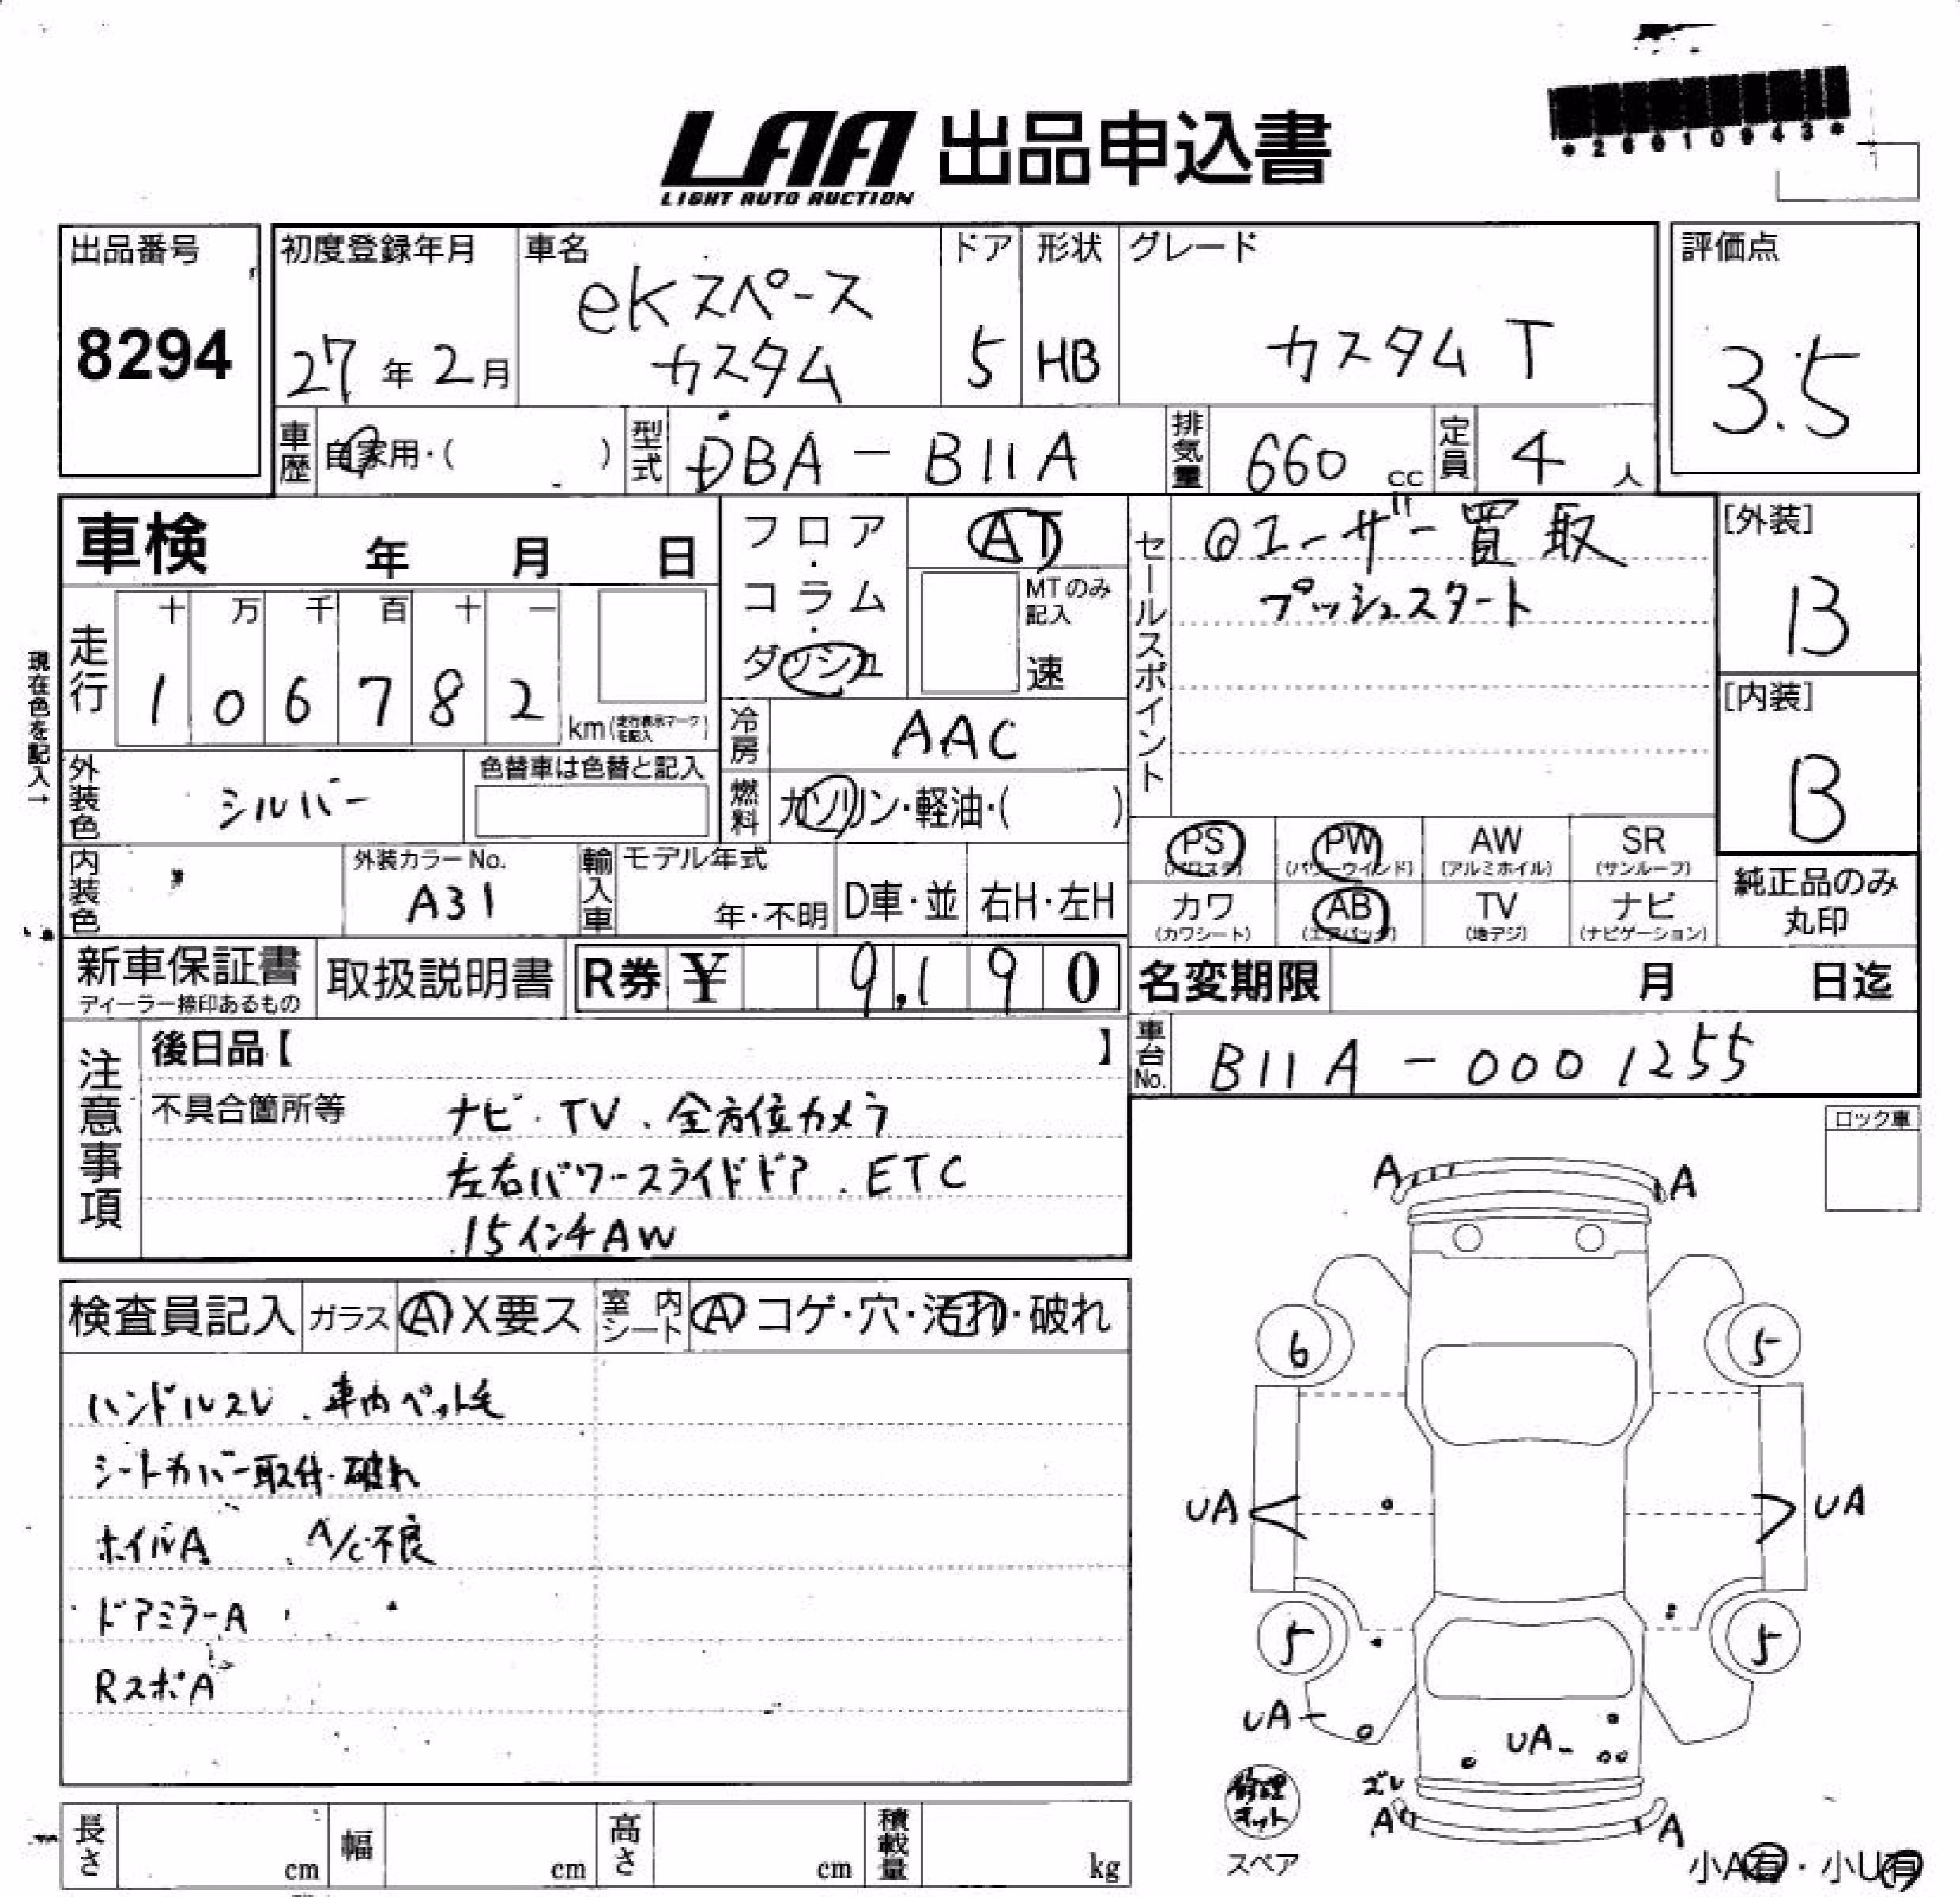 *26010943*
LAA 出品申込書
LIGHT AUTO AUCTION
出品番号
8294
初度登録年月
27年2月
車名
eKスペース
カスタム
ドア
5
形状
HB
グレード
カスタム T
評価点
3.5
車歴
自家用・( )
型式
DBA-B11A
排気量
660 cc
定員
4 人
車検 年 月 日
フロア・コラム・ダッシュ
AT
MTのみ記入
速
現在色を記入→
走行
十 万 千 百 十 一
1 0 6 7 8 2
km(走行表示マークを記入)
冷房
AAC
外装色
シルバー
色替車は色替と記入
燃料
ガソリン・軽油・( )
セールスポイント
ユーザー買取
プッシュスタート
[外装]
B
[内装]
B
PS (パワステ)
PW (パワーウインド)
AW (アルミホイル)
SR (サンルーフ)
カワ (カワシート)
AB (エアバッグ)
TV (地デジ)
ナビ (ナビゲーション)
純正品のみ
丸印
内装色
外装カラーNo.
A31
輸入車
モデル年式
年・不明
D車・並
右H・左H
新車保証書
ディーラー捺印あるもの
取扱説明書
R券 ¥ 9,190
名変期限 月 日迄
車台No.
B11A-0001255
注意事項
後日品【 】
不具合箇所等
ナビ・TV、全方位カメラ
左右パワースライドドア、ETC
15インチAW
ロック車
検査員記入
ガラス
A X要ス
室内シート
A コゲ・穴・汚れ・破れ
ハンドルスレ、車内ペット毛
シートカバー取付・破れ
ホイルA、A/C不良
ドアミラーA
RスポA
A
A
6
5
UA
UA
5
5
UA
UA
ズレ
A
A
修理キット
スペア
小A有・小U有
長さ cm
幅 cm
高さ cm
積載量 kg